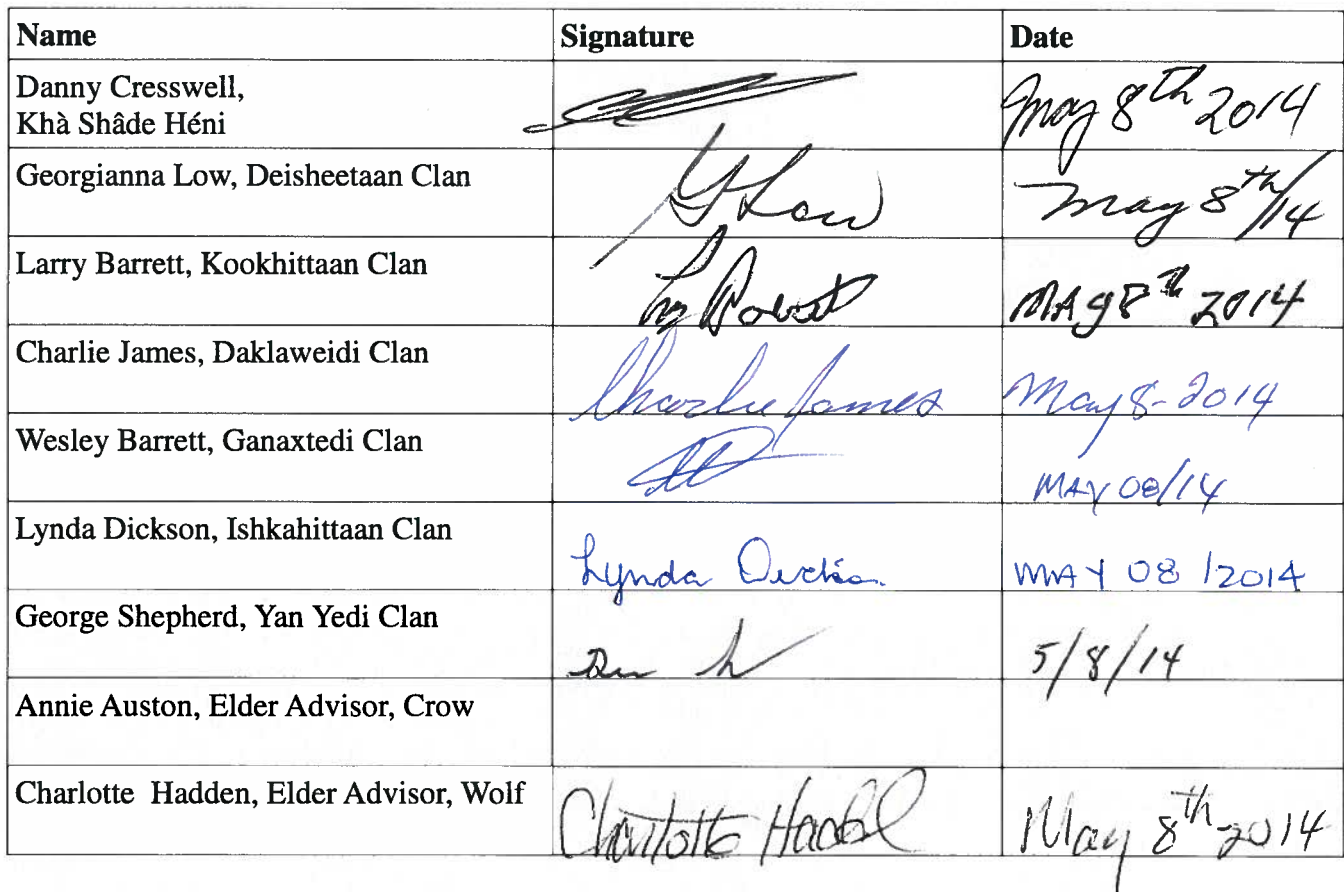 Name Signature Date
Danny Cresswell,
Khà Shâde Héni May 8th 2014
Georgianna Low, Deisheetaan Clan G Low May 8th/14
Larry Barrett, Kookhittaan Clan MAy 8th 2014
Charlie James, Daklaweidi Clan Charlie James May 8-2014
Wesley Barrett, Ganaxtedi Clan MAY 08/14
Lynda Dickson, Ishkahittaan Clan Lynda Dickson MAY 08/2014
George Shepherd, Yan Yedi Clan 5/8/14
Annie Auston, Elder Advisor, Crow
Charlotte Hadden, Elder Advisor, Wolf Charlotte Hadden May 8th 2014